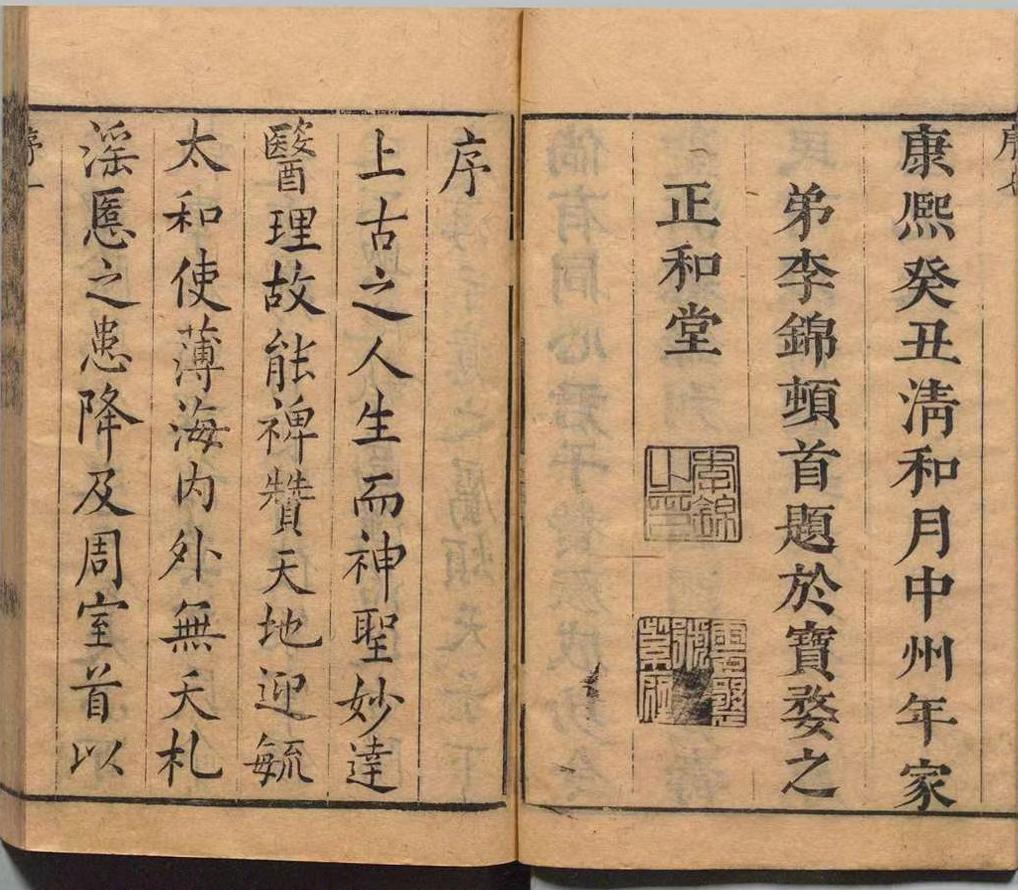 序七
康熙癸丑淸和月中州年家
弟李錦頓首題於寶婺之
正和堂
李錦
之印
序
上古之人生而神聖妙達
醫理故能裨贊天地迎毓
太和使薄海内外無夭札
滛慝之患降及周室首以
序一